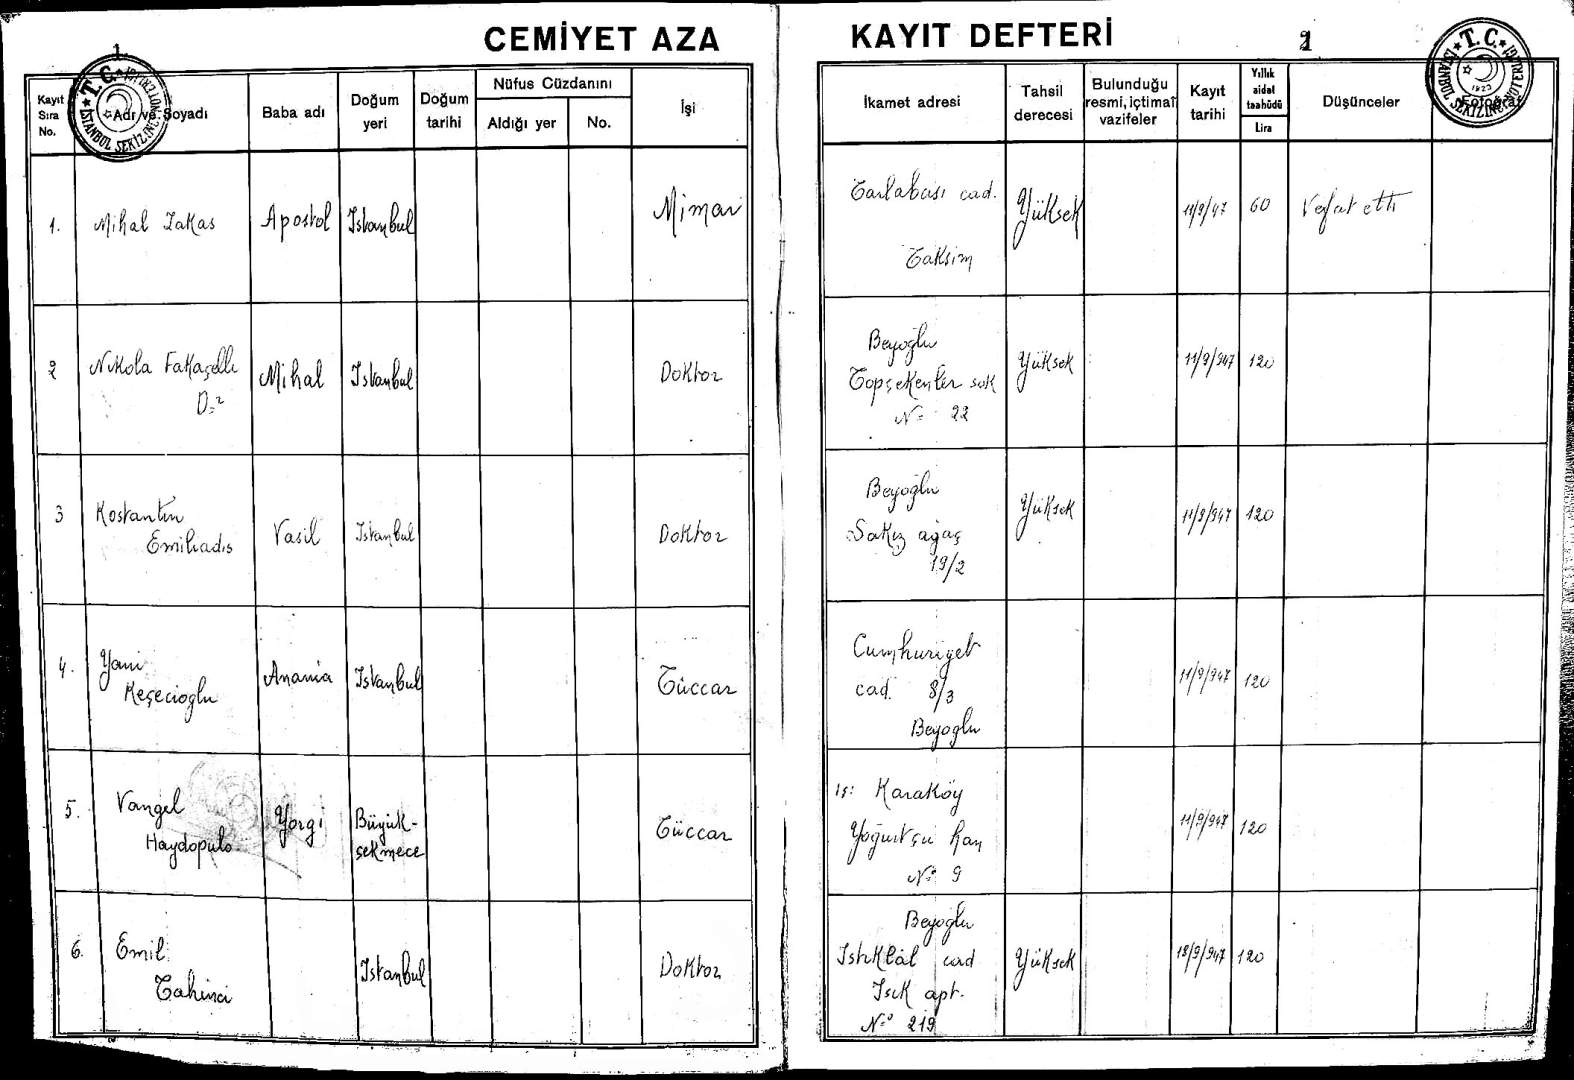 CEMİYET AZA KAYIT DEFTERİ
1
1
T. C.
İSTANBUL SEKİZİNCİ NOTERLİĞİ
T. C.
İSTANBUL SEKİZİNCİ NOTERLİĞİ
1923
Kayıt Sıra No.
Adı ve Soyadı
Baba adı
Doğum yeri
Doğum tarihi
Nüfus Cüzdanını
Aldığı yer
No.
İşi
İkamet adresi
Tahsil derecesi
Bulunduğu resmi, içtimai vazifeler
Kayıt tarihi
Yıllık aidat taahüdü
Lira
Düşünceler
Fotoğraf
1. Mihal Zakas Apostol Istanbul Mimar Tarlabası cad. Yüksek 11/9/47 60 Vefat etti
Taksim
2 Nikola Fakaçelli Mihal Istanbul Doktor Beyoğlu Yüksek 11/9/947 120
D:r Topçekenler sok
No: 22
3 Kostantin Vasil Istanbul Doktor Beyoğlu Yüksek 11/9/947 120
Emiliadis Sakız ağaç
19/2
4. Yani Anania Istanbul Tüccar Cumhuriyet 11/9/947 120
Keçecioglu cad. 8/3
Beyoglu
5. Vangel Yorgi Büyük- Tüccar iş: Karaköy 11/9/947 120
Haydopulo çekmece Yoğurtçu han
No: 9
6. Emil Istanbul Doktor Beyoglu Yüksek 18/9/947 120
Tahinci Istiklâl cad
Isık apt.
No: 219